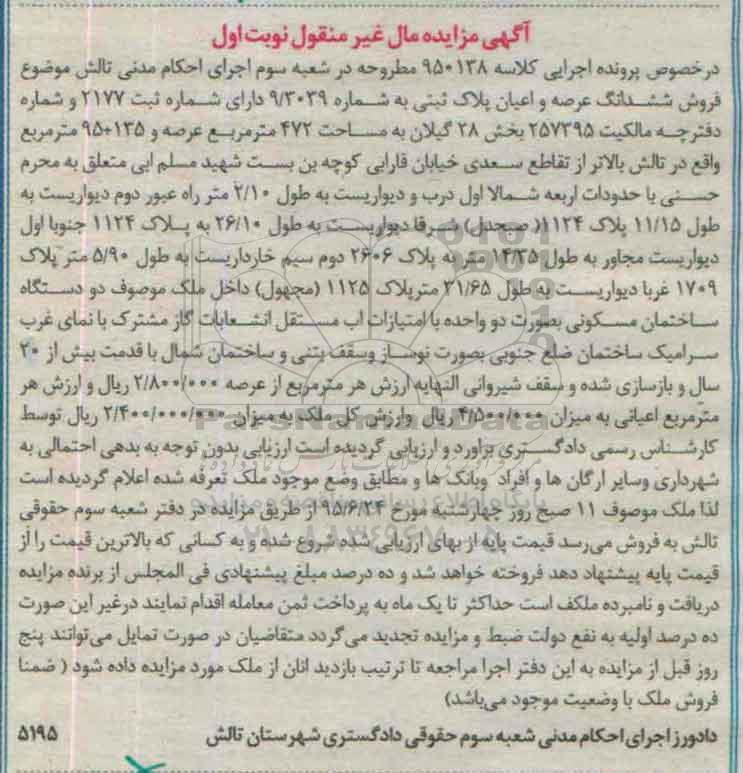 آگهی مزایده مال غیر منقول نوبت اول
درخصوص پرونده اجرایی کلاسه ۹۵۰۱۳۸ مطروحه در شعبه سوم اجرای احکام مدنی تالش موضوع
فروش ششدانگ عرصه و اعیان پلاک ثبتی به شماره ۹/۳۰۳۹ دارای شماره ثبت ۲۱۷۷ و شماره
دفترچه مالکیت ۲۵۷۳۹۵ بخش ۲۸ گیلان به مساحت ۴۷۲ مترمربع عرصه و ۱۳۵+۹۵ مترمربع
واقع در تالش بالاتر از تقاطع سعدی خیابان فارابی کوچه بن بست شهید مسلم ابی متعلق به محرم
حسنی با حدودات اربعه شمالا اول درب و دیواریست به طول ۲/۱۰ متر راه عبور دوم دیواریست به
طول ۱۱/۱۵ پلاک ۱۱۲۴( صیحدل) شرقا دیواریست به طول ۲۶/۱۰ به پلاک ۱۱۲۴ جنوبا اول
دیواریست مجاور به طول ۱۴/۳۵ متر به پلاک ۲۶۰۶ دوم سیم خارداریست به طول ۵/۹۰ متر پلاک
۱۷۰۹ غربا دیواریست به طول ۳۱/۶۵ مترپلاک ۱۱۲۵ (مجهول) داخل ملک موصوف دو دستگاه
ساختمان مسکونی بصورت دو واحده با امتیازات اب مستقل انشعابات گاز مشترک با نمای غرب
سرامیک ساختمان ضلع جنوبی بصورت نوساز وسقف بتنی و ساختمان شمال با قدمت بیش از ۲۰
سال و بازسازی شده و سقف شیروانی النهایه ارزش هر مترمربع از عرصه ۲/۸۰۰/۰۰۰ ریال و ارزش هر
مترمربع اعیانی به میزان ۴/۵۰۰/۰۰۰ ریال وارزش کل ملک به میزان ۲/۴۰۰/۰۰۰/۰۰۰ ریال توسط
کارشناس رسمی دادگستری براورد و ارزیابی گردیده است ارزیابی بدون توجه به بدهی احتمالی به
شهرداری وسایر ارگان ها و افراد وبانک ها و مطابق وضع موجود ملک تعرفه شده اعلام گردیده است
لذا ملک موصوف ۱۱ صبح روز چهارشنبه مورخ ۹۵/۶/۲۴ از طریق مزایده در دفتر شعبه سوم حقوقی
تالش به فروش می‌رسد قیمت پایه از بهای ارزیابی شده شروع شده و به کسانی که بالاترین قیمت را از
قیمت پایه پیشنهاد دهد فروخته خواهد شد و ده درصد مبلغ پیشنهادی فی المجلس از برنده مزایده
دریافت و نامبرده ملکف است حداکثر تا یک ماه به پرداخت ثمن معامله اقدام نمایند درغیر این صورت
ده درصد اولیه به نفع دولت ضبط و مزایده تجدید می‌گردد متقاضیان در صورت تمایل می‌توانند پنج
روز قبل از مزایده به این دفتر اجرا مراجعه تا ترتیب بازدید انان از ملک مورد مزایده داده شود ( ضمنا
فروش ملک با وضعیت موجود می‌باشد)
دادورز اجرای احکام مدنی شعبه سوم حقوقی دادگستری شهرستان تالش ۵۱۹۵
ParsNamadData